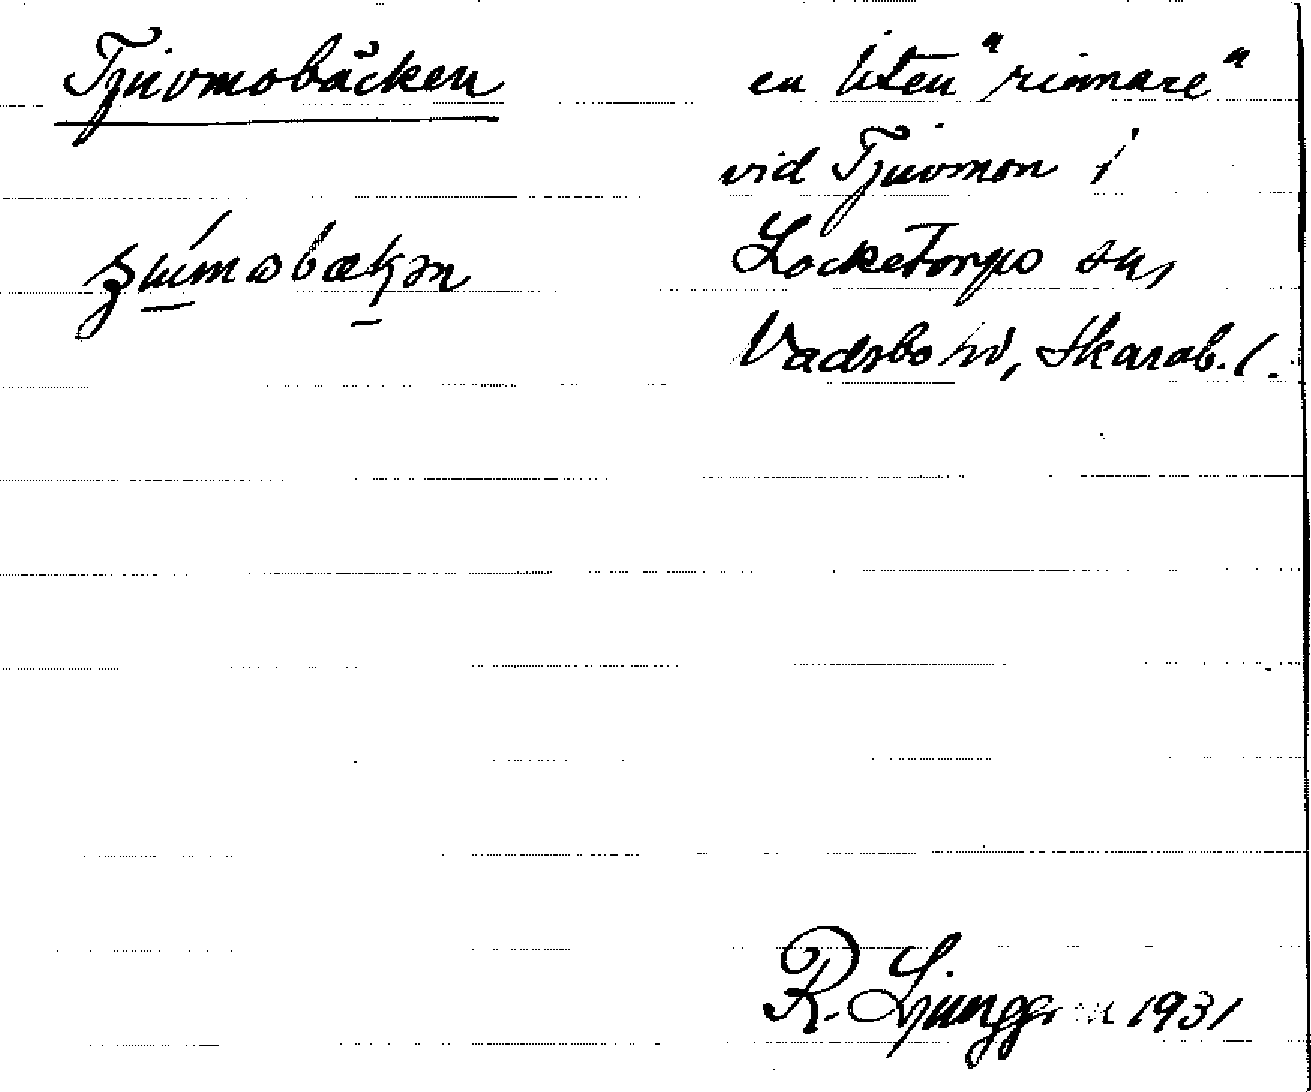 Tjuvmobäcken
en liten "rinnare"
vid Tjuvmon i
Locketorps sn,
Vadsbo hd, Skarab. l.
R. Ljunggren 1931